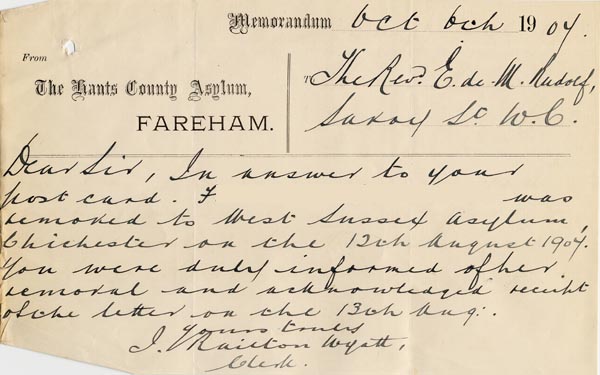 Memorandum Oct 6th 1904.
From
The Hants County Asylum,
FAREHAM.
To The Revd. E. de M. Rudolf,
Savoy St. W.C.
Dear Sir, In answer to your
post card. F was
removed to West Sussex Asylum,
Chichester on the 12th August 1904.
You were duly informed of her
removal and acknowledged receipt
of the letter on the 13th Aug:.
Yours truly
J. Railton Wyatt,
Clerk.